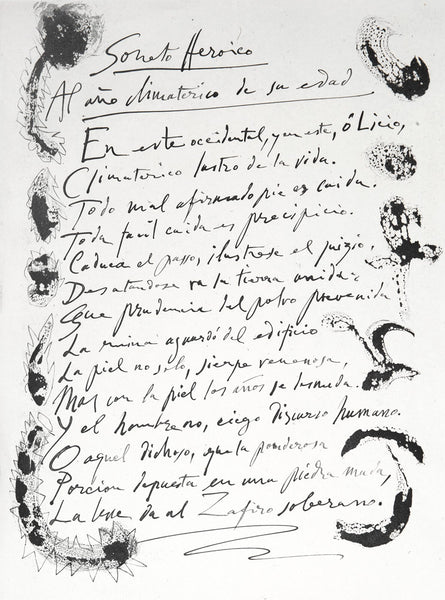 Soneto Heroico
Al año climaterico de su edad
En este occidental, y en este, ó Licio,
Climaterico lustro de la vida.
Todo mal afirmado pie es caida.
Toda facil caida es precipicio.
Caduca el passo, ilustrese el juizio,
Desatandose va la tierra unida:
Que prudencia del polvo prevenida
La ruina aguardó del edificio
La piel no solo, sierpe venenosa,
Mas con la piel los años se desnuda.
Y el hombre no, ciego discurso humano.
O aquel dichoso, que la ponderosa
Porcion depuesta en una piedra muda,
La leve da al Zafiro soberano.